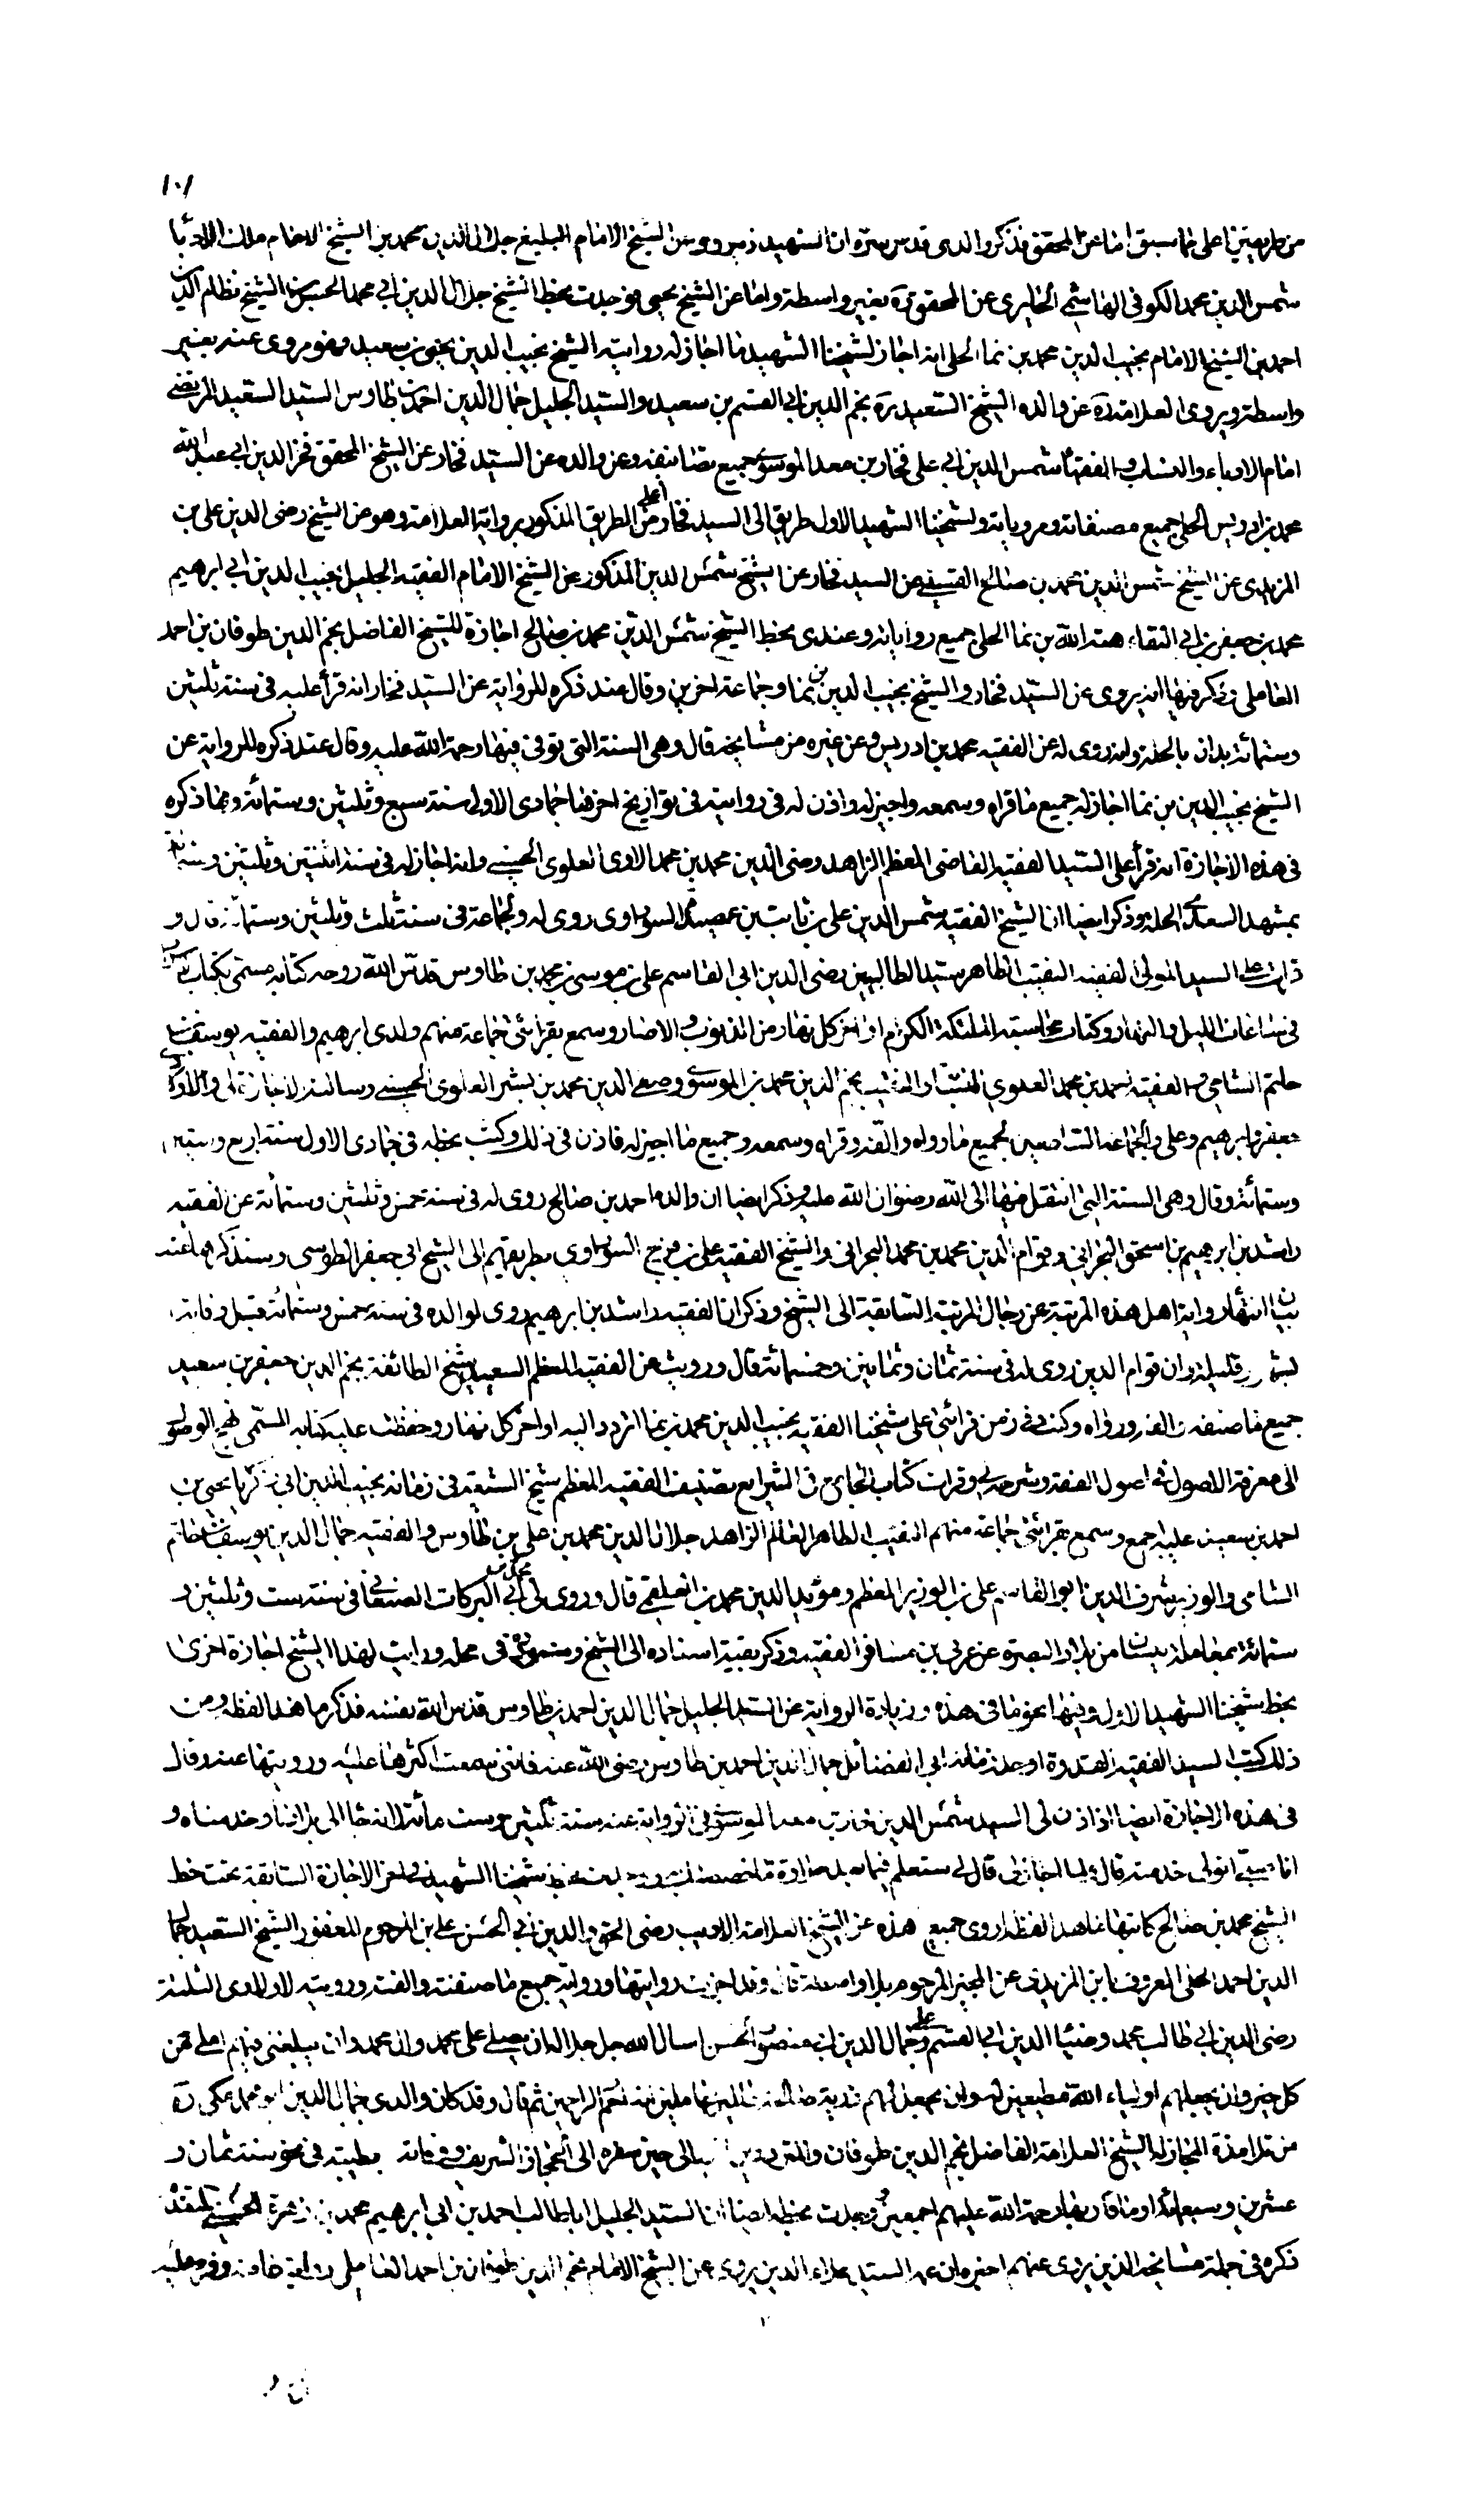 ١٠١
من طريقين اعلى مما سبق اما عن المحقق فذكر والدى قدس سره ان الشهيد ره يروى عن الشيخ الامام البليغ جلال الدين محمد بن الشيخ الامام ملك الادباء
شمس الدين محمد الكوفى الهاشمى الحايرى عن المحقق ره بغير واسطة واما عن الشيخ يحيى فوجدت بخط الشيخ جلال الدين ابى محمد الحسن بن الشيخ نظام الدين
احمد بن الشيخ الامام نجيب الدين محمد بن نما الحلى انه اجاز لشيخنا الشهيد ما اجاز له روايته الشيخ نجيب الدين يحيى بن سعيد فهو مروى عنه بغير
واسطة ويروى العلامة ره عن والده الشيخ السعيد ره نجم الدين ابى القسم بن سعيد والسيد الجليل جمال الدين احمد بن طاوس السيد السعيد المرتضى
امام الادباء والنساب والفقهاء شمس الدين ابى على فخار بن معد الموسوى جميع تصانيفه وعن والده عن السيد فخار عن الشيخ المحقق فخر الدين ابى عبد الله
محمد بن ادريس الحلى جميع مصنفاته ومروياته ولشيخنا الشهيد الاول طريق الى السيد فخار اعلى من الطريق المذكور برواية العلامة وهو عن الشيخ رضى الدين على بن
المزيدى عن الشيخ شمس الدين محمد بن صالح القسينى عن السيد فخار عن الشيخ شمس الدين المذكور عن الشيخ الامام الفقيه الجليل نجيب الدين ابى ابرهيم
محمد بن جعفر بن ابى البقاء هبة الله بن نما الحلى جميع رواياته وعندى بخط الشيخ شمس الدين محمد بن صالح اجازة للشيخ الفاضل نجم الدين طومان بن احمد
العاملى وذكر فيها انه يروى عن السيد فخار والشيخ نجيب الدين بن نما وجماعة اخرين وقال عند ذكره للرواية عن السيد فخار انه قرأ عليه فى سنة ثلثين
وستمائة بداره بالحلة وانه روى له عن الفقيه محمد بن ادريس وعن غيره من مشايخه قال وهى السنة التى توفى فيها رحمة الله عليه وقال عند ذكره للرواية عن
الشيخ نجيب الدين بن نما اجاز له جميع ما قراه وسمعه واجيز له واذن له فى روايته فى تواريخ اخرها جمادى الاولى سنة سبع وثلثين وستمائة ومما ذكره
فى هذه الاجازة انه قرأ على السيد الفقيه القاضى المعظم الزاهد رضى الدين محمد بن محمد الاوى العلوى الحسينى وانه اجاز له فى سنة اثنتين وثلثين وستمائة
بمشهد السعداء الحلة وذكر ايضا ان الشيخ الفقيه شمس الدين على بن ثابت بن عصيدة السوراوى روى له ولجماعة فى سنة ثلث وثلثين وستمائة قال و
قرات على السيد المولى الفقيه النقيب الطاهر سيد الطالبيين رضى الدين ابى القاسم على بن موسى بن محمد بن طاوس قدس الله روحه كتابه مسمى بكتاب الاسرار
فى ساعات الليل والنهار وكتاب محاسبة الملئكة الكرام اواخر كل نهار من الذنوب والاصار وسمع بقرائتى جماعة منهم ولدى ابرهيم والفقيه يوسف بن
حاتم الشامى والفقيه احمد بن محمد العلوى النسابة والنقيب نجم الدين محمد بن الموسوى وصفى الدين محمد بن بشير العلوى الحسينى وسالته الاجازة لى ولاولادى
جعفر وابرهيم وعلى والجماعة السامعين لجميع ما رواه والفه وقراه وسمعه وجميع ما اجيز له فاذن فى ذلك وكتب بخطه فى جمادى الاول سنة اربع وستين
وستمائة وقال وهى السنة التى انتقل فيها الى الله رضوان الله عليه وذكر ايضا ان والده احمد بن صالح روى له فى سنة خمس وثلثين وستمائة عن الفقيه
راشد بن ابرهيم بن اسحق البحرانى وقوام الدين محمد بن محمد البحرانى والشيخ الفقيه على بن فرج السوراوى بطريقهم الى الشيخ ابى جعفر الطوسى وسنذكرها عند
بيان انتهاء رواية اهل هذه المرتبة عن رجال المرتبة السابقة الى الشيخ وذكر ان الفقيه راشد بن ابرهيم روى لوالده فى سنة خمس وستمائة قبل وفاته
بشهور قليلة وان قوام الدين روى له فى سنة ثمان وثمانين وخمسمائة قال ورويت عن الفقيه المعظم السعيد شيخ الطائفة نجم الدين جعفر بن سعيد
جميع ما صنفه والفه ورواه وكنت فى زمن قرائتى على شيخنا الفقيه نجيب الدين محمد بن نما اتردد اليه اواخر كل نهار وحفظت عليه كتابه المسمى نهج الوصول
الى معرفة الاصول فى اصول الفقه وشرحه لى وقرات كتاب الجامع فى الشرايع تصنيف الفقيه المعظم شيخ الشيعة فى زمانه نجيب الدين ابى زكريا يحيى بن
احمد بن سعيد عليه اجمع وسمع بقرائتى جماعة منهم النقيب الطاهر العالم الزاهد جلال الدين محمد بن على بن طاوس والفقيه جمال الدين يوسف بن حاتم
الشامى والوزير شرف الدين ابو القاسم على بن الوزير المعظم ومؤيد الدين محمد بن العلقمى قال وروى لى محمد بن ابى البركات الصنعانى فى سنة ست وثلثين و
ستمائة بمعاملة من بلاد البصرة عن عربى بن مسافر الفقيه وذكر بقية اسناده الى الشيخ فى محله ورايت لهذا الشيخ اجازة اخرى
بخط شيخنا الشهيد الاول وفيها نحو ما فى هذه وزيادة الرواية عن السيد الجليل جمال الدين احمد بن طاوس قدس الله نفسه فذكر ما هذا لفظه ومن
ذلك كتب السيد الفقيه القدوة اوحد زمانه ابى الفضائل جمال الدين احمد بن طاوس رضى الله عنه فاننى سمعت اكثرها عليه ورويتها عنه وقال
فى هذه الاجازة ايضا اذ اذن لى السيد شمس الدين فخار بن معد الموسوى فى الرواية عنه سنة ثلثين وست مائة الى بلادنا وخدمناه و
انا صبى اتولى خدمته قال لما اجاز لى قال لى ستعلم فيما بعد حلاوة ما خصصتك بخط شيخنا الشهيد الاجازة السابقة تحت خط
الشيخ محمد بن صالح كاتبها ما هذا لفظه اروى جميع هذه عن الشيخ العلامة الاديب رضى الحق والدين ابى الحسن على بن المرحوم المغفور الشيخ السعيد جمال
الدين احمد الحلى المعروف بابن المزيدى عن المجيز المرحوم بلا واسطة قال وقد اجزت روايتها ورواية جميع ما صنفته والفته ورويته لاولادى الثلثة
رضى الدين ابى طالب محمد وضياء الدين ابى القسم على وجمال الدين ابى منصور الحسن اسال الله جل جلاله ان يصلى على محمد وال محمد وان يبلغنى فيهم املى من
كل خير وان يجعلهم اولياء الله مطيعين له وان يجعل لهم ذرية صالحة عاملين انه ارحم الراحمين ثم قال وقد كان والدى جمال الدين ابو محمد مكى ره
من تلامذة المجاز له الشيخ العلامة الفاضل نجم الدين طومان والمترددين الى حين سفره الى الحجاز الشريف ووفاته بطيبة فى نحو سنة ثمان و
عشرين وسبعمائة او ما قاربها رحمة الله عليهم اجمعين ووجدت بخطه ايضا ان السيد الجليل ابا طالب احمد بن ابى ابرهيم محمد بن زهرة الحسينى المتقدم
ذكره فى جملة مشايخه الذين يروى عنهم اخبره ان عمه السيد علاء الدين يروى عن الشيخ الامام نجم الدين طومان بن احمد العاملى رواية عامة وقرء عليه